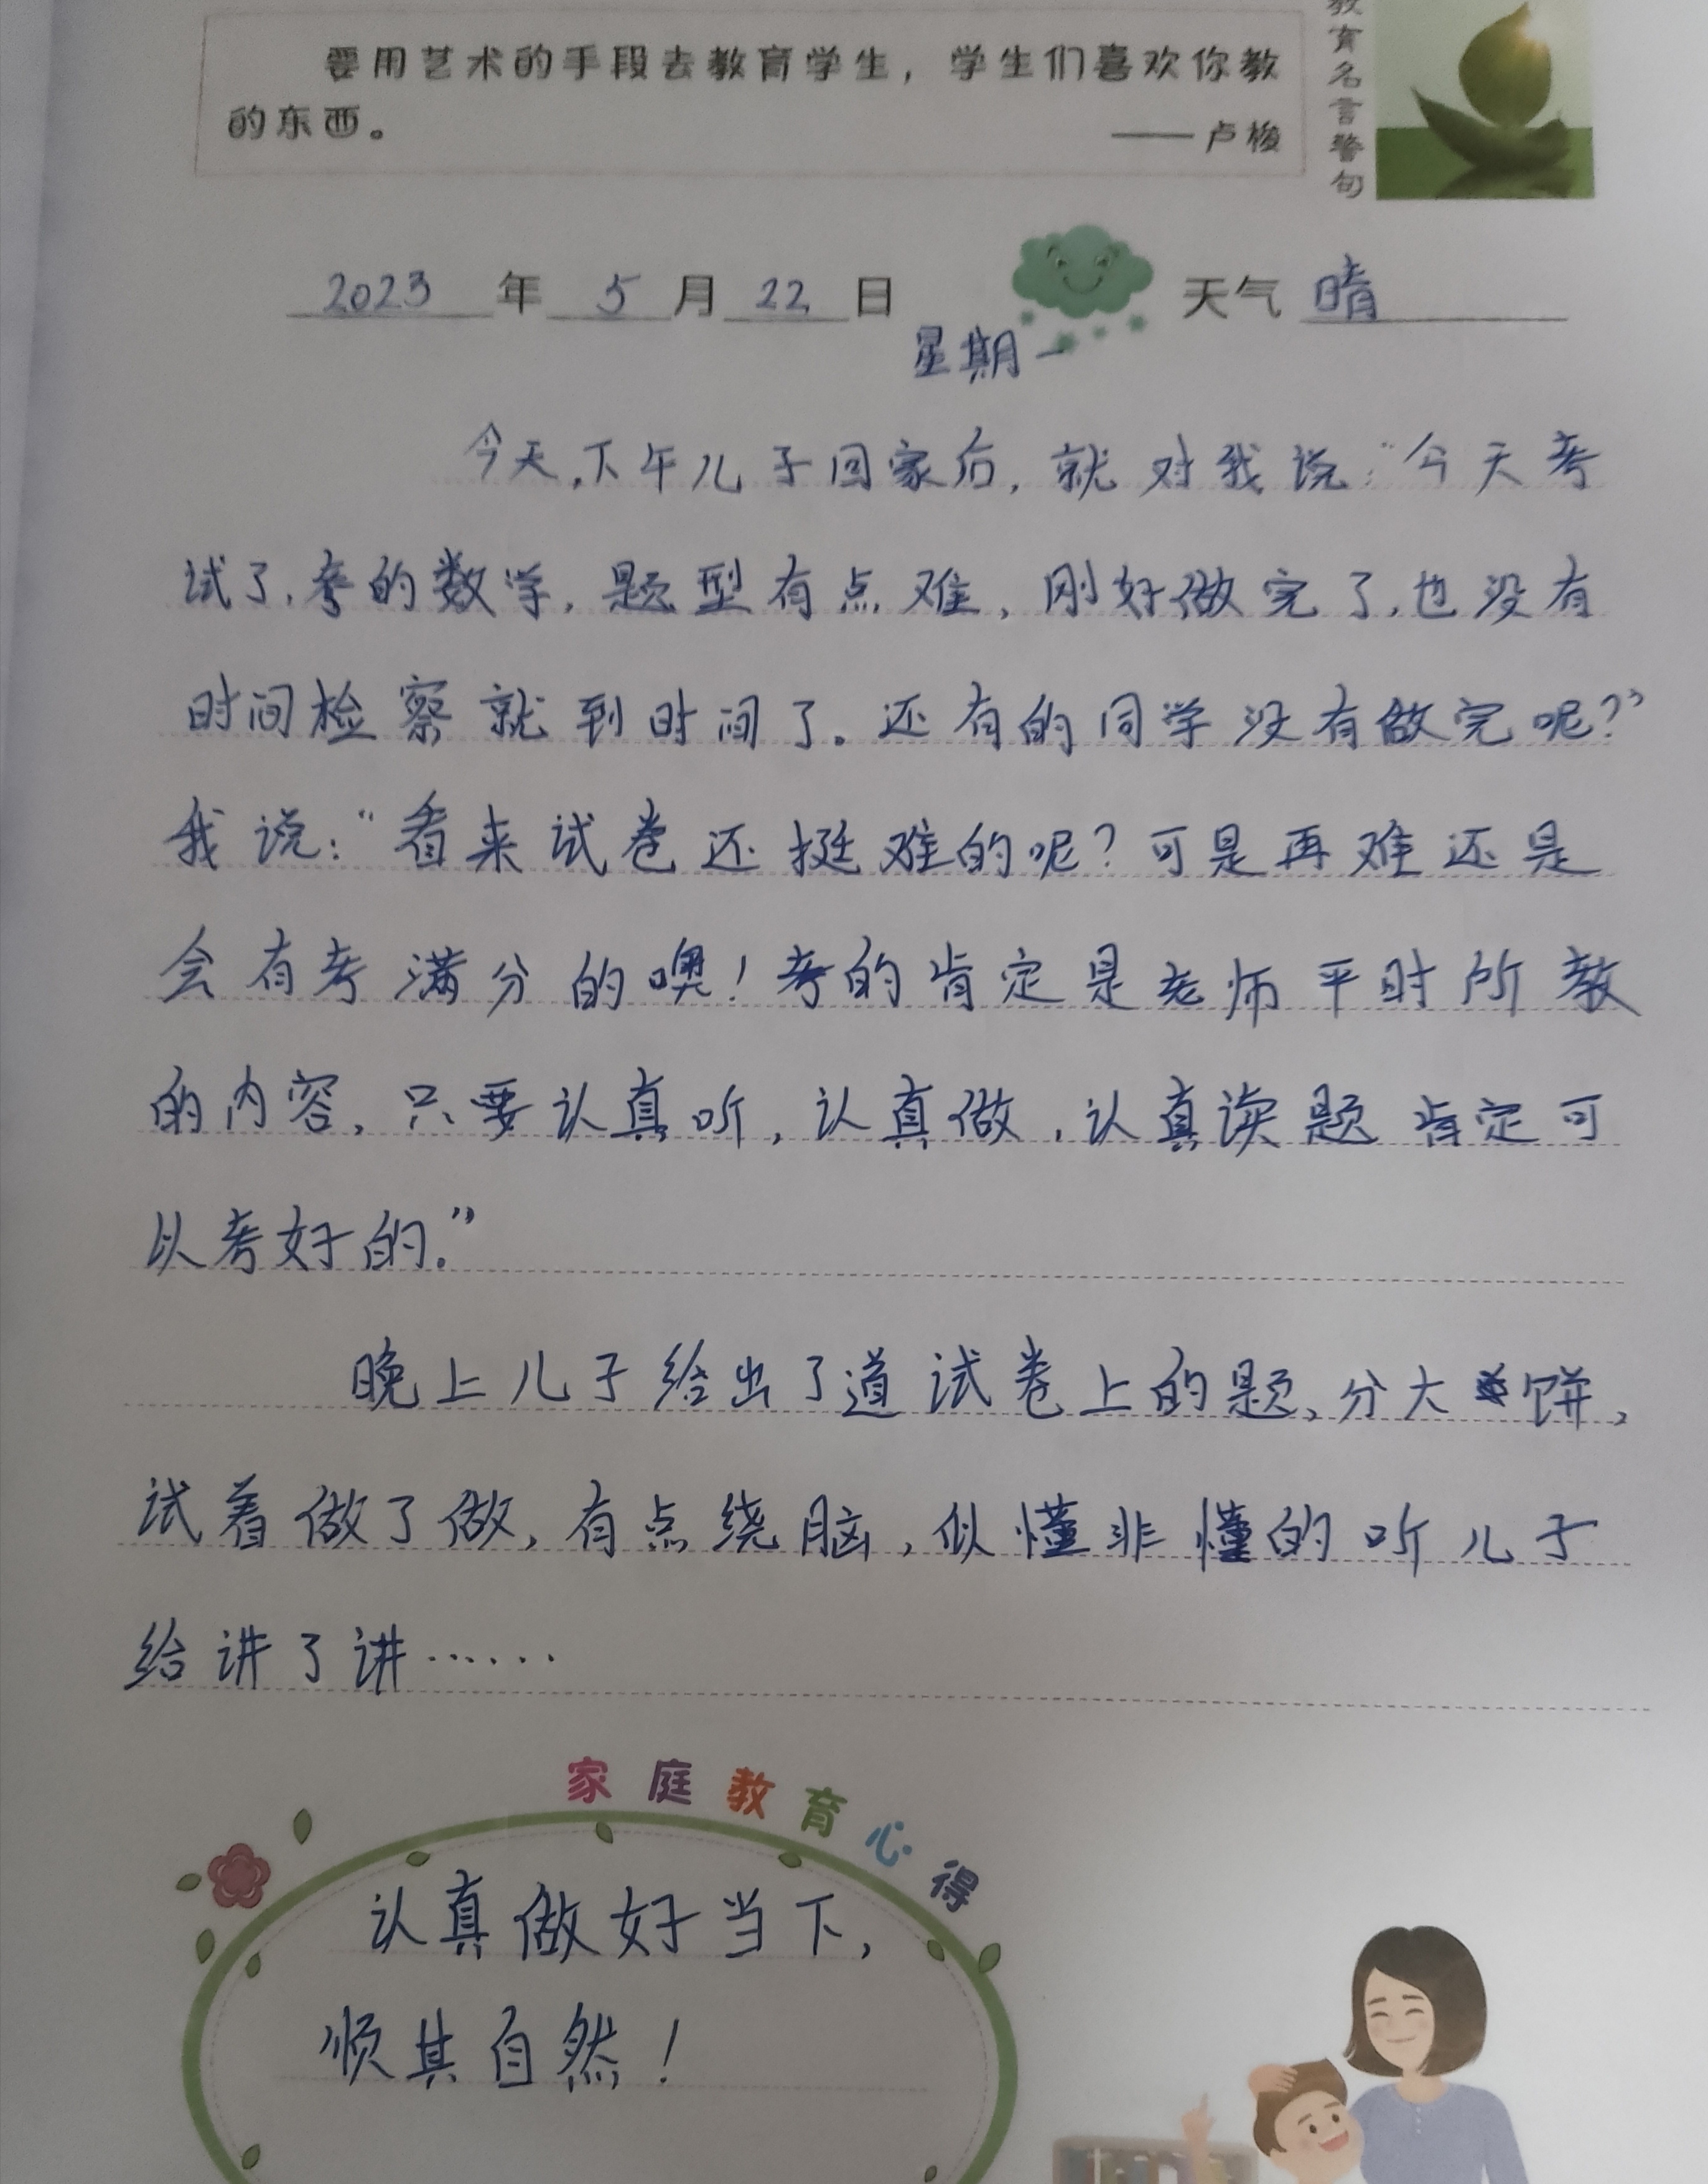 要用艺术的手段去教育学生，学生们喜欢你教
的东西。
——卢梭
教育名言警句
2023 年 5 月 22 日 天气 晴
星期一
今天,下午儿子回家后,就对我说:“今天考
试了,考的数学,题型有点难,刚好做完了,也没有
时间检察就到时间了。还有的同学没有做完呢?”
我说:“看来试卷还挺难的呢?可是再难还是
会有考满分的噢!考的肯定是老师平时所教
的内容,只要认真听,认真做,认真读题肯定可
以考好的.”
晚上儿子给出了道试卷上的题,分大饼,
试着做了做,有点绕脑,似懂非懂的听儿子
给讲了讲……
家庭教育心得
认真做好当下,
顺其自然!